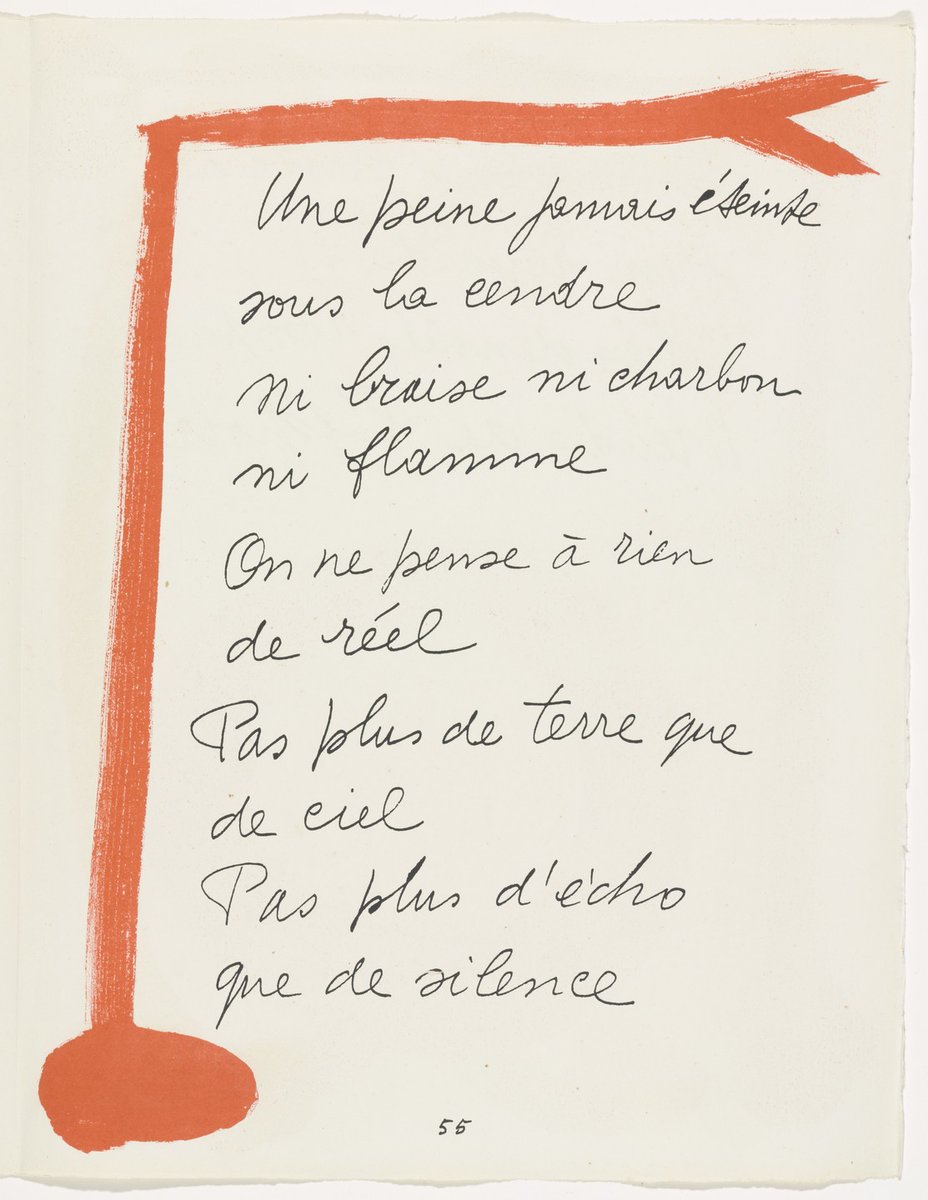 Une peine jamais éteinte
sous la cendre
Ni braise ni charbon
ni flamme
On ne pense à rien
de réel
Pas plus de terre que
de ciel
Pas plus d'écho
que de silence
55